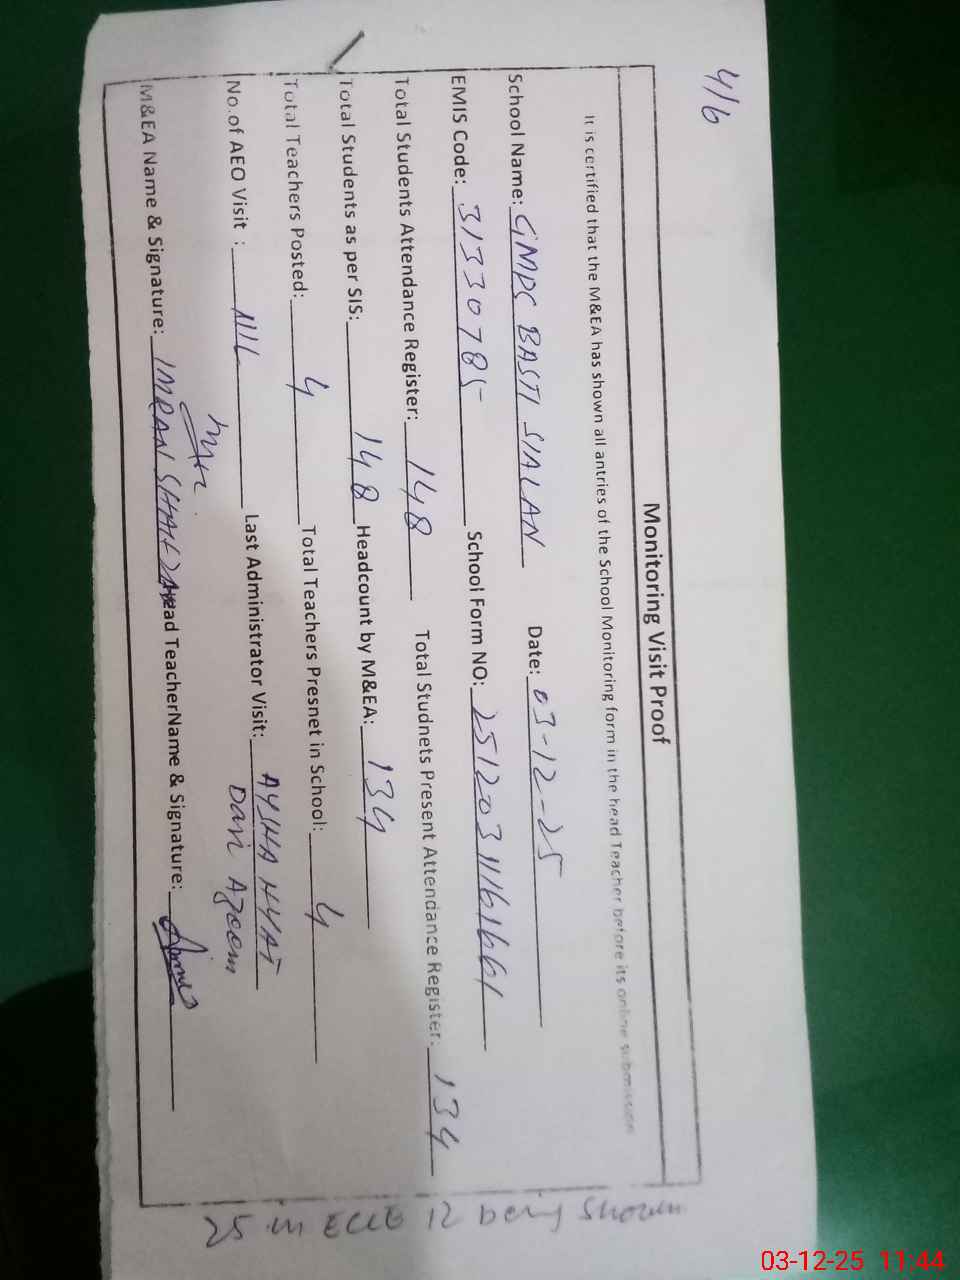 4/6
Monitoring Visit Proof
It is certified that the M&EA has shown all antries of the School Monitoring form in the head Teacher before its online submission
School Name: GMPS BASTI SIALAN Date: 03-12-25
EMIS Code: 31330785 School Form NO: 251203111616661
Total Students Attendance Register: 148 Total Studnets Present Attendance Register: 134
Total Students as per SIS: 148 Headcount by M&EA: 134
Total Teachers Posted: 4 Total Teachers Presnet in School: 4
No.of AEO Visit : NIL Last Administrator Visit: AYSHA HYAT
Azeem
M&EA Name & Signature: IMRAN SHAHZAD Head TeacherName & Signature:
25 in ECCE 12 being shown
03-12-25 11:44